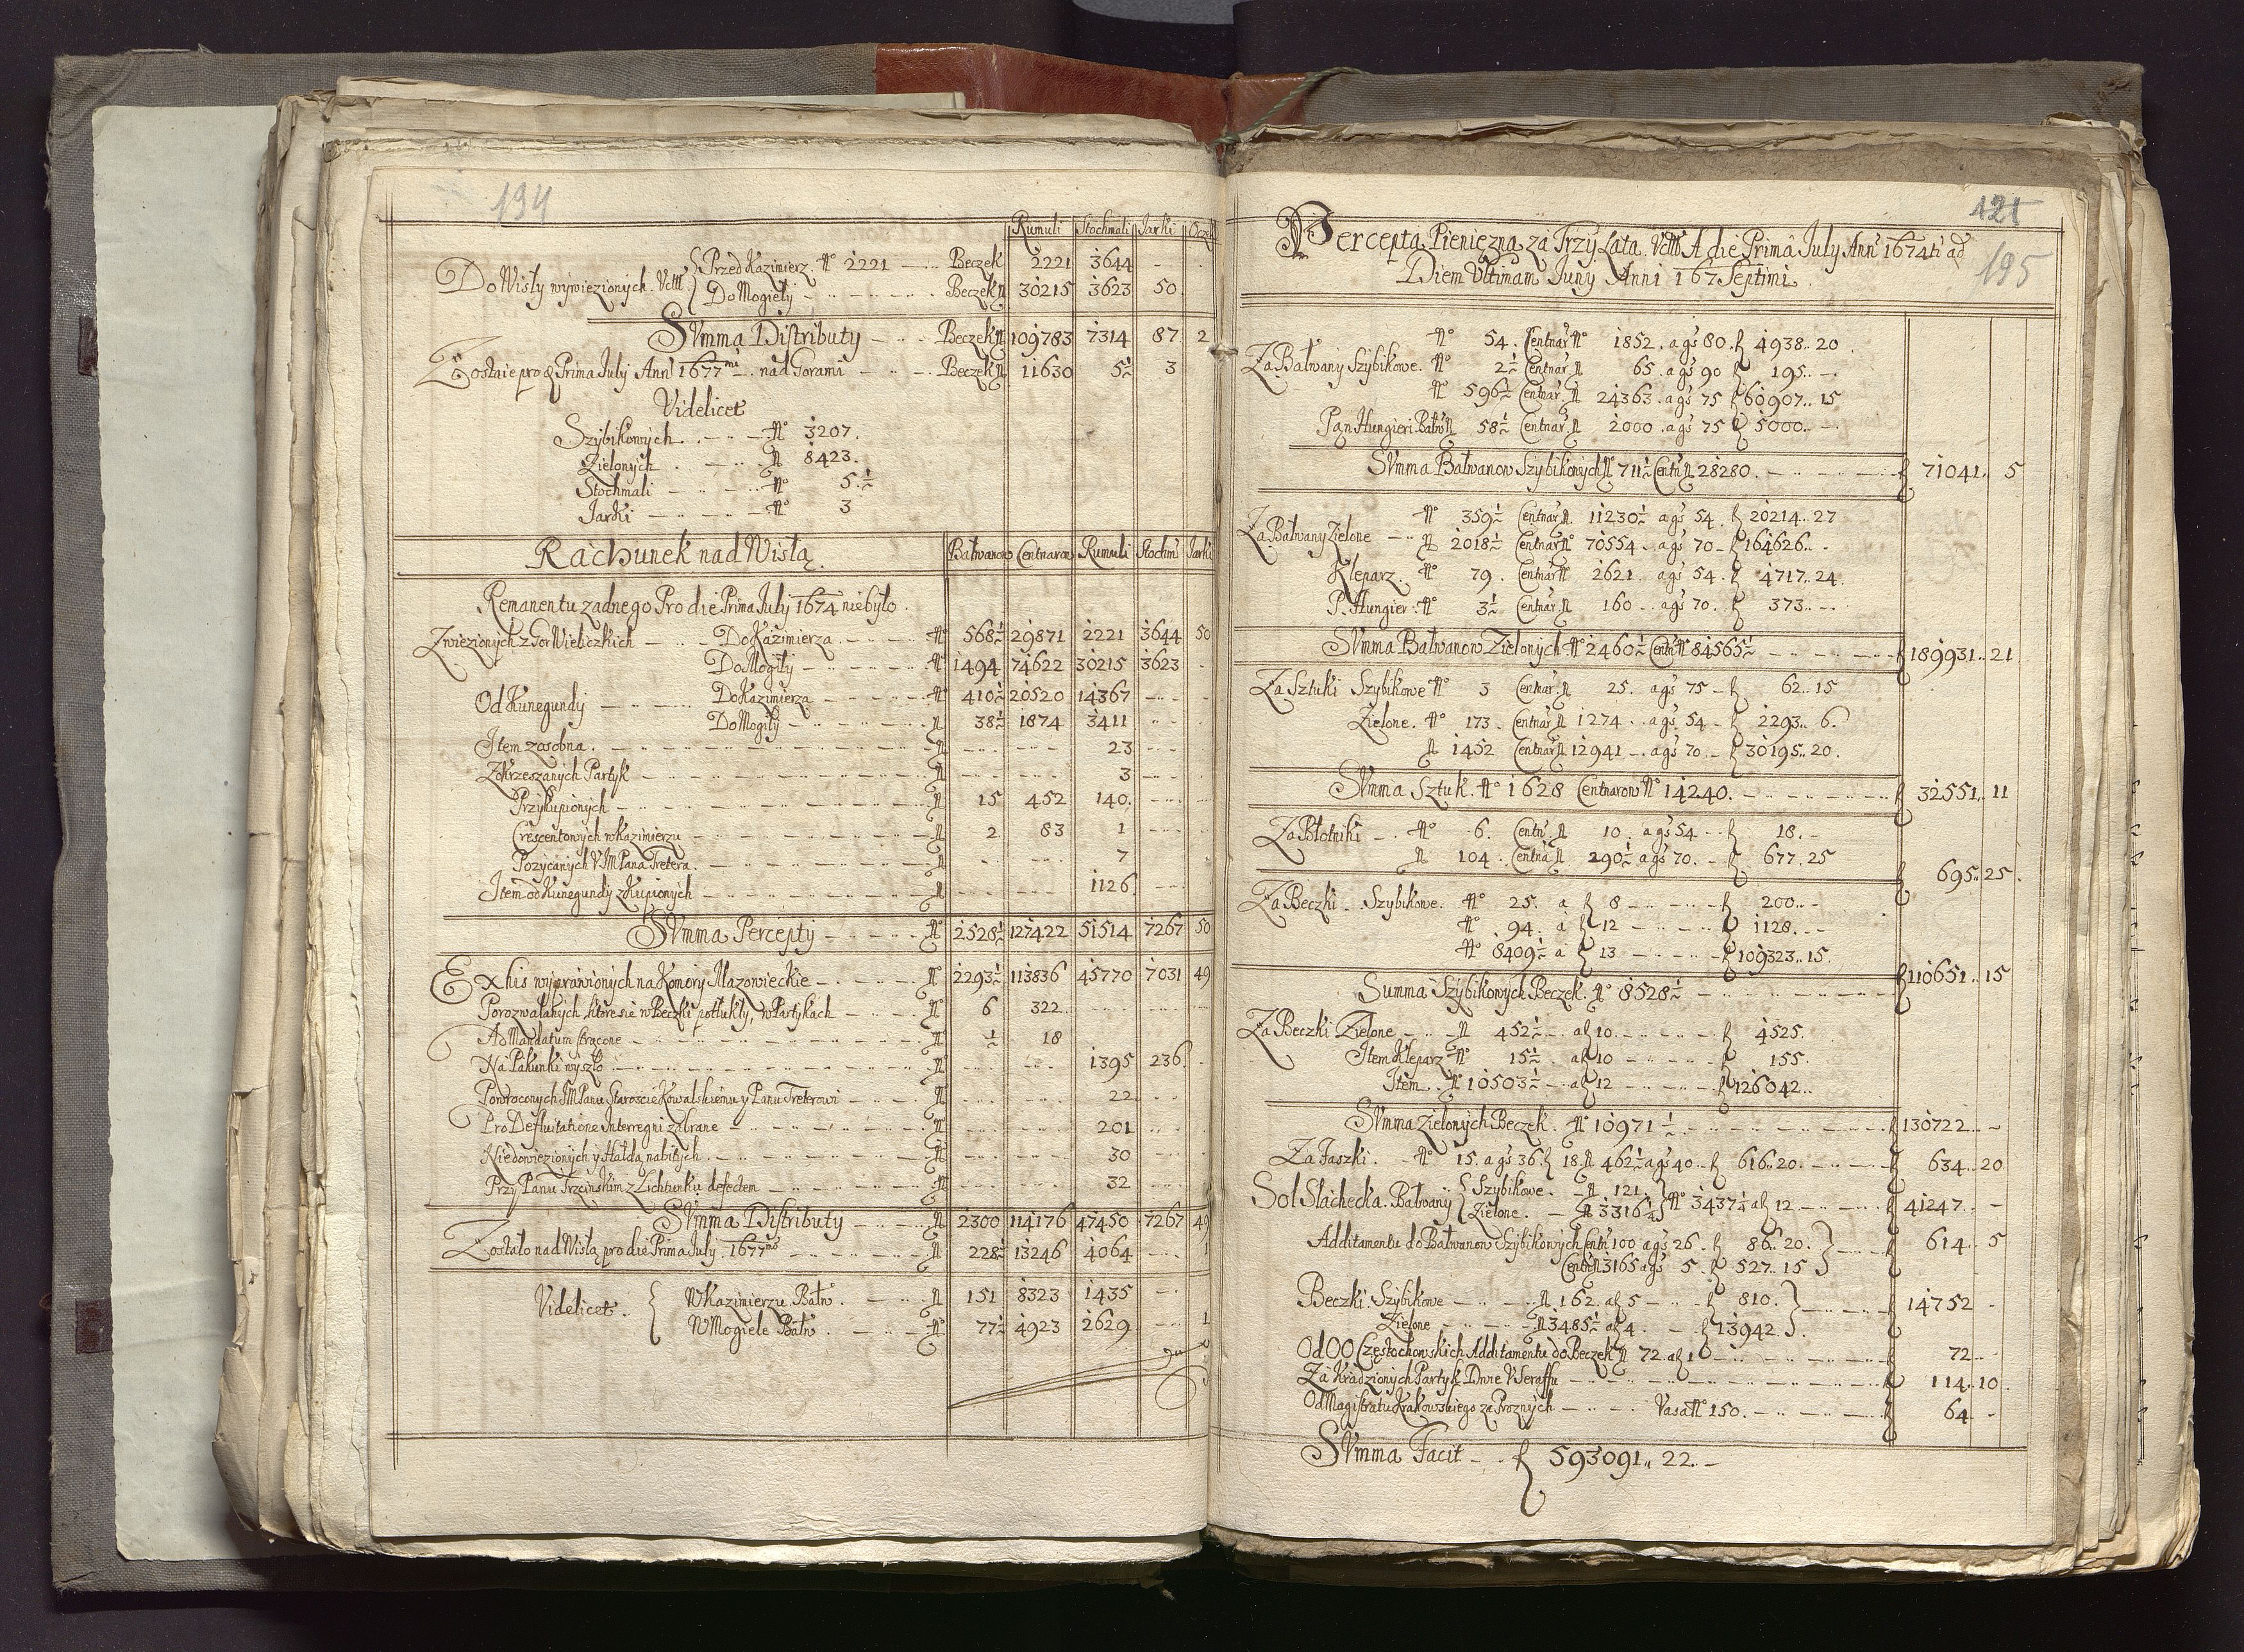 194
Rumuli Stochmali Jarki Oczek
Do Wisły wywiezionych. Vdtt Przed Kazimierz. No 2221 Beczek 2221 3644
Do Mogiły Beczek 30215 3623 50
Summa Distributy Beczek 109783 7314 87 2
Zostaie pro d. Prima July Ann 1677mi nad Gorami Beczek 11630 5½ 3
Videlicet
Szybikowych No 3207.
Zielonych N 8423.
Stochmali No 5½
Jarki No 3
Rachunek nad Wisłą. Bałwanow Centnarow Rumuli Stochm Jarki
Remanentu zadnego Pro die Prima July 1674 niebyło.
Zwiezionych z Gor Wieliczkich Do Kazimierza No 568½ 29871 2221 3644 50
Do Mogiły No 1494 74622 30215 3623
Od Kunegundy Do Kazimierza No 410½ 20520 14367
Do Mogiły N 38½ 1874 3411
Item zosobna. N 23
Zokrzeszanych Partyk N 3
Przykupionych N 15 452 140.
Crescentowych w Kazimierzu N 2 83 1
Pozyczanych V JM Pana Tretera. N 7
Item od Kunegundy zkupionych N 1126
Summa Percepty No 2528½ 127422 51514 7267 50
Ex his wyprawionych na Komory Mazowieckie N 2293½ 113836 45770 7031 49
Porozwalanych, ktore sie w Beczki potłukły, w Partykach N 6 322
Ad Mandatum stracone N ½ 18
Na Pakunki wyszło N 1395 236.
Powroconych JM Panu Staroscie Kowalskiemu y Panu Treterowi N 22
Pro Defluitatione Interregni zabrane N 201
Niedowiezionych y Hałdą nabitych N 30
Przy Panu Trzcinskim z Lichtunku defectem N 32
Summa Distributy N 2300 114176 47450 7267 49
Zostało nad Wisłą pro die Prima July. 1677mo N 228½ 13246 4064 1
Videlicet. W Kazimierzu Bałw. N 151 8323 1435
W Mogiele Bałw. No 77½ 4923 2629 1
121
195
Percepta Pieniezna za Trzy Lata. Vdtt A die Prima July Ann 1674ti ad
Diem Ultimam Juny Anni 167 Septimi.
No 54. Centnar No 1852. a gs 80. f 4938.. 20
Za Bałwany Szybikowe. No 2½ Centnar N 65. a gs 90 f 195.. -
No 596½ Centnar N 24363. a gs 75 f 60907.. 15
Pan Hungieri. Bałw N 58½ Centnar N 2000. a gs 75 f 5000.. -
Summa Bałwanow Szybikowych No 711½ Centn N 28280. f 71041.. 5
No 359½ Centnar N. 11230½ a gs 54. f 20214.. 27
Za Bałwany Zielone N 2018½ Centnar No 70554 a gs 70 f 164626..
Kleparz. No 79. Centnar No 2621. a gs 54. f 4717.. 24.
P. Hungier. No 3½ Centnar N 160 a gs 70. f 373.. -
Summa Bałwanow Zielonych No 2460½ Centn No 84565½ f 189931.. 21
Za Sztuki Szybikowe No 3 Centnar. N 25. a gs 75 f 62.. 15
Zielone. No 173. Centnar N 1274. a gs. 54 f 2293.. 6.
N 1452 Centnar N 12941 a gs 70 f 30195.. 20.
Summa Sztuk. No 1628 Centnarow No 14240. f 32551.. 11
Za Błotniki No 6. Centn N 10. a gs 54 f 18. -
N 104. Centna N 290½ a gs 70. f 677. 25
f 695.. 25.
Za Beczki Szybikowe. No 25. a f 8 f 200.. -
No 94. a f 12 f 1128. -
No 8409½ a f 13 f 109323.. 15.
f 110651.. 15
Summa Szybikowych Beczek. No 8528½
Za Beczki Zielone N 452½ a f 10. f 4525.
Item Kleparz No 15½. a f 10 f 155.
Item. No 10503½ a f 12 f 126042..
Summa Zielonych Beczek. No 10971½ f 130722.. -
Za Faszki. No 15. a gs 36. f 18. N 462½ a gs 40 f 616.. 20. f 634.. 20
Sol Slachecka. Bałwany Szybikowe. N 121. No 3437¼ a f 12 f 41247. -
Zielone. N 3316¼
Additamentu do Bałwanow Szybikowych Centn 100 a gs 26. f 86.. 20. f 614.. 5
Centn N 3165 a gs 5. f 527.. 15
Beczki. Szybikowe N 162. a f 5 f 810. f 14752 -
Zielone N 3485½ a f 4. f 13942.
Od OO Częstochowskich Additamentu do Beczek N 72. a f 1 f 72.. -
Za Kradzionych Partyk Dwie V Seraffa f 114.. 10.
Od Magistratu Krakowskiego za Proznych Vasa No 150. f 64.. -
Summa Facit f 593091.. 22.. -